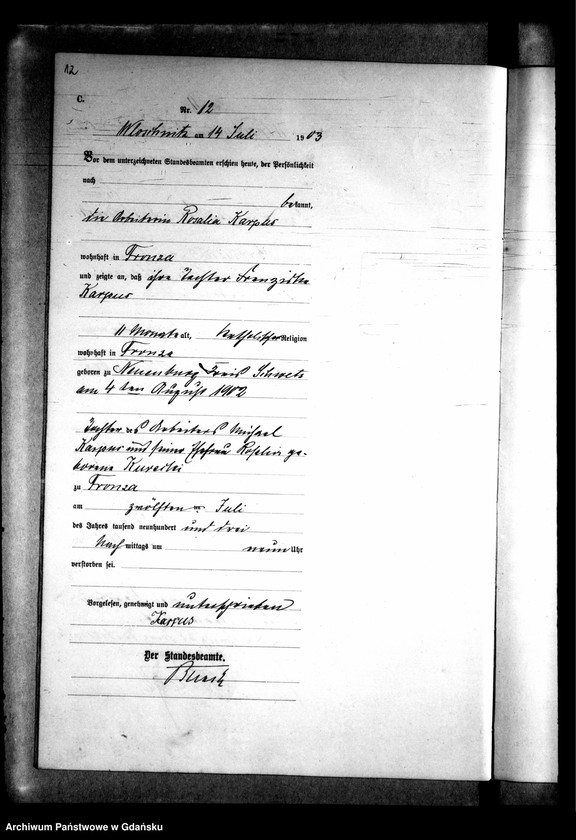 12
C.
Nr. 12
am 14 Juli 1903
Vor dem unterzeichneten Standesbeamten erschien heute, der Persönlichkeit
nach
bekannt,
die Arbeiterin Rosalia Karpus
wohnhaft in Fronza
und zeigte an, daß ihre Tochter Franziska
Karpus
11 Monate alt, katholischer Religion
wohnhaft in Fronza
geboren zu Neuenburg Kreis Schwetz
am 4 ten August 1902
Tochter des Arbeiters Michael
Karpus und seiner Ehefrau Rosalia ge-
borene
zu Fronza
am zwölften Juli
des Jahres tausend neunhundert und drei
Nach mittags um neun Uhr
verstorben sei.
Vorgelesen, genehmigt und unterschrieben
Karpus
Der Standesbeamte.
Archiwum Państwowe w Gdańsku